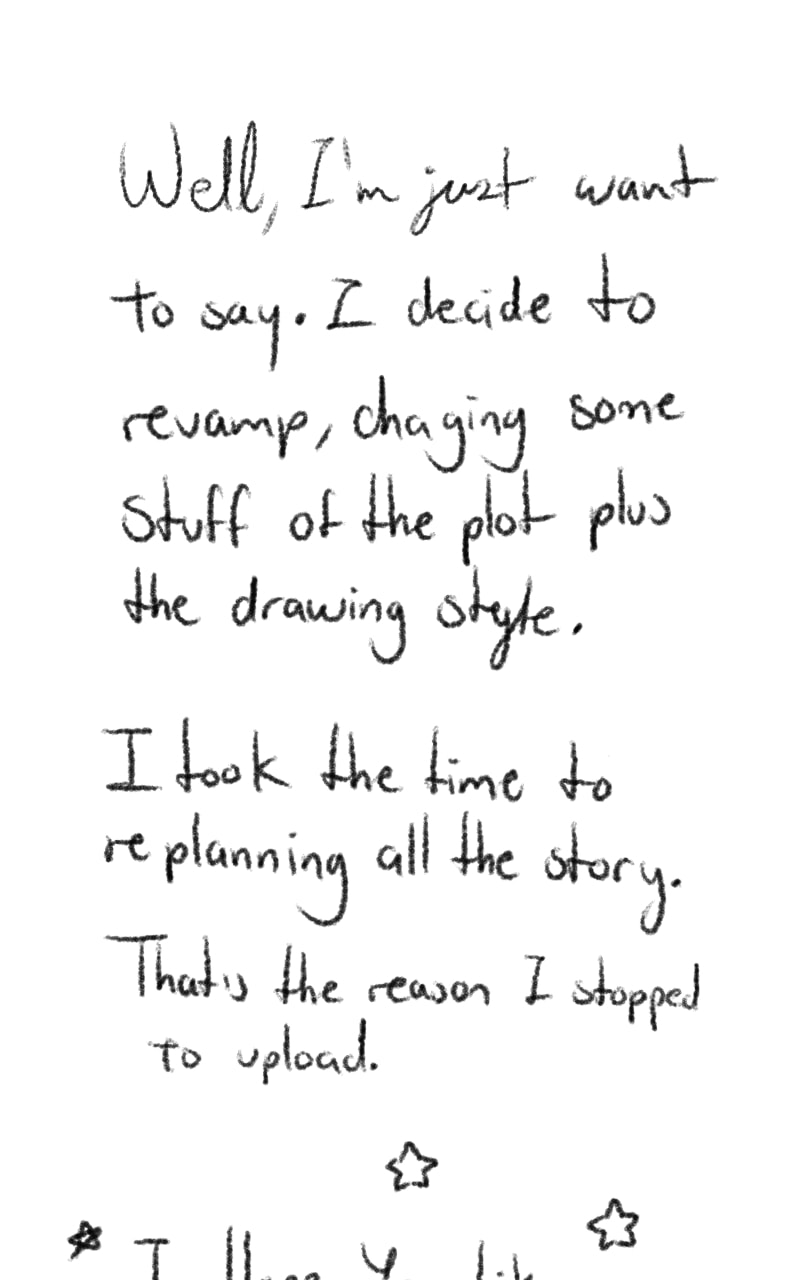 Well, I'm just want
to say. I decide to
revamp, chaging some
stuff of the plot plus
the drawing style.
I took the time to
replanning all the story.
Thats the reason I stopped
to upload.
I